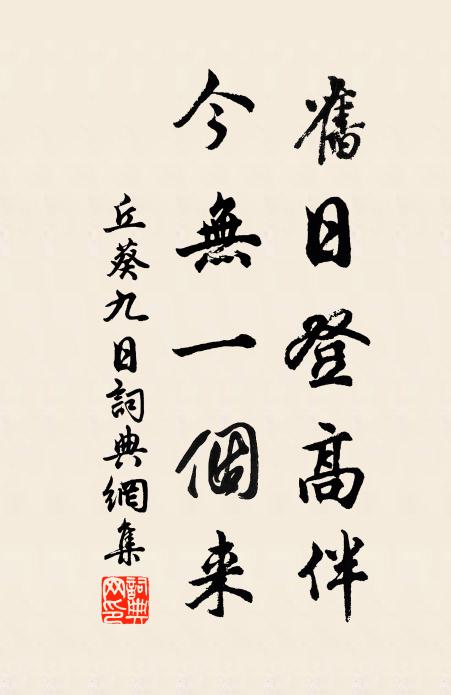 舊日登高伴
今無一個来
丘葵九日詞典網集
詞典
网印